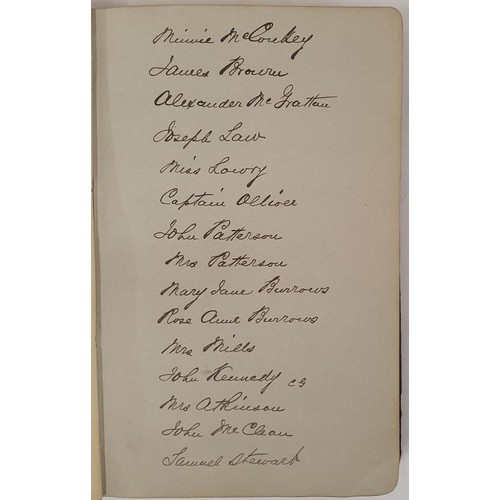 Minnie McConkey
James Brown
Alexander McGrattan
Joseph Law
Miss Lowry
Captain Olliver
John Patterson
Mrs Patterson
Mary Jane Burrows
Rose Anne Burrows
Mrs Mills
John Kennedy
Mrs Atkinson
John McClean
Samuel Stewart